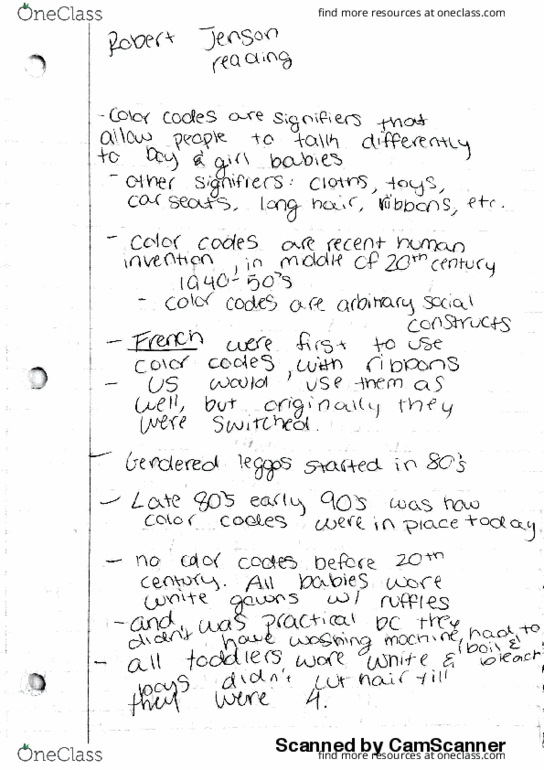 OneClass
find more resources at oneclass.com
Robert Jenson
reading
- Color codes are signifiers that
allow people to talk differently
to boy & girl babies
- other signifiers: cloths, toys,
car seats, long hair, ribbons, etc.
- color codes are recent human
invention, in middle of 20th century
1940-50's
- color codes are arbitrary social
constructs
- French were first to use
color codes, with ribbons
- US would use them as
well, but originally they
were switched.
- Gendered leggos started in 80's
- Late 80's early 90's was how
color codes were in place today.
- no color codes before 20th
century. All babies wore
white gowns w/ ruffles
- and was practical bc they
didn't have washing machine, had to
boil & bleach
- all toddlers wore white &
boys didn't cut hair till
they were 4.
Scanned by CamScanner
OneClass
find more resources at oneclass.com